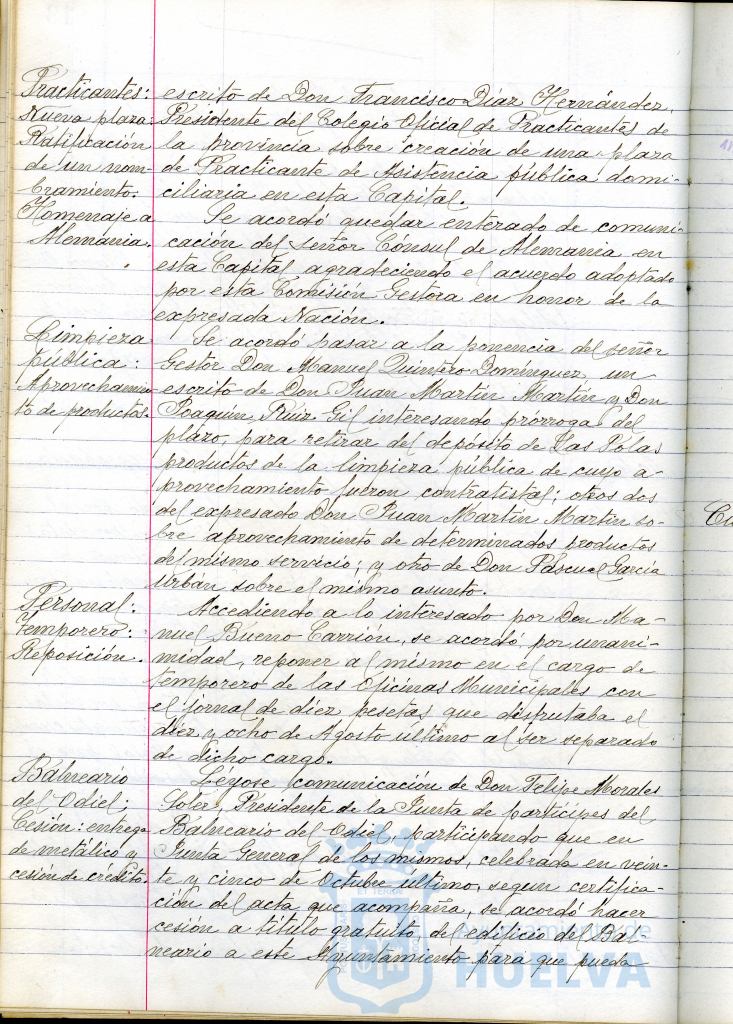 Practicantes:
Nueva plaza.
Ratificación
de un nom-
bramiento.
escrito de Don Francisco Díaz Hernández,
Presidente del Colegio Oficial de Practicantes de
la provincia sobre creación de una plaza
de Practicante de Asistencia pública domi-
ciliaria en esta Capital.
Homenaje a
Alemania.
Se acordó quedar enterado de comuni-
cación del señor Cónsul de Alemania en
esta Capital agradeciendo el acuerdo adoptado
por esta Comisión Gestora en honor de la
expresada Nación.
Limpieza
pública:
Aprovechamien-
to de productos.
Se acordó pasar a la ponencia del señor
Gestor Don Manuel Quintero Domínguez un
escrito de Don Juan Martín Martín y Don
Joaquín Ruiz Gil interesando prórroga del
plazo, para retirar del depósito de Las Polas
productos de la limpieza pública de cuyo a-
provechamiento fueron contratistas; otros dos
del expresado Don Juan Martín Martín so-
bre aprovechamiento de determinados productos
del mismo servicio; y otro de Don Pascual García
Urbán sobre el mismo asunto.
Personal:
Temporero:
Reposición.
Accediendo a lo interesado por Don Ma-
nuel Bueno Carrión, se acordó por unani-
midad, reponer al mismo en el cargo de
temporero de las Oficinas Municipales con
el jornal de diez pesetas que disfrutaba el
diez y ocho de Agosto último al ser separado
de dicho cargo.
Balneario
del Odiel;
Cesión: entrega
de metálico y
cesión de crédito.
Léyose comunicación de Don Felipe Morales
Soler, Presidente de la Junta de partícipes del
Balneario del Odiel, participando que en
Junta General de los mismos, celebrada en vein-
te y cinco de Octubre último, segun certifica-
ción del acta que acompaña, se acordó hacer
cesión a título gratuito del edificio del Bal-
neario a este Ayuntamiento para que pueda
Ayuntamiento de
HUELVA